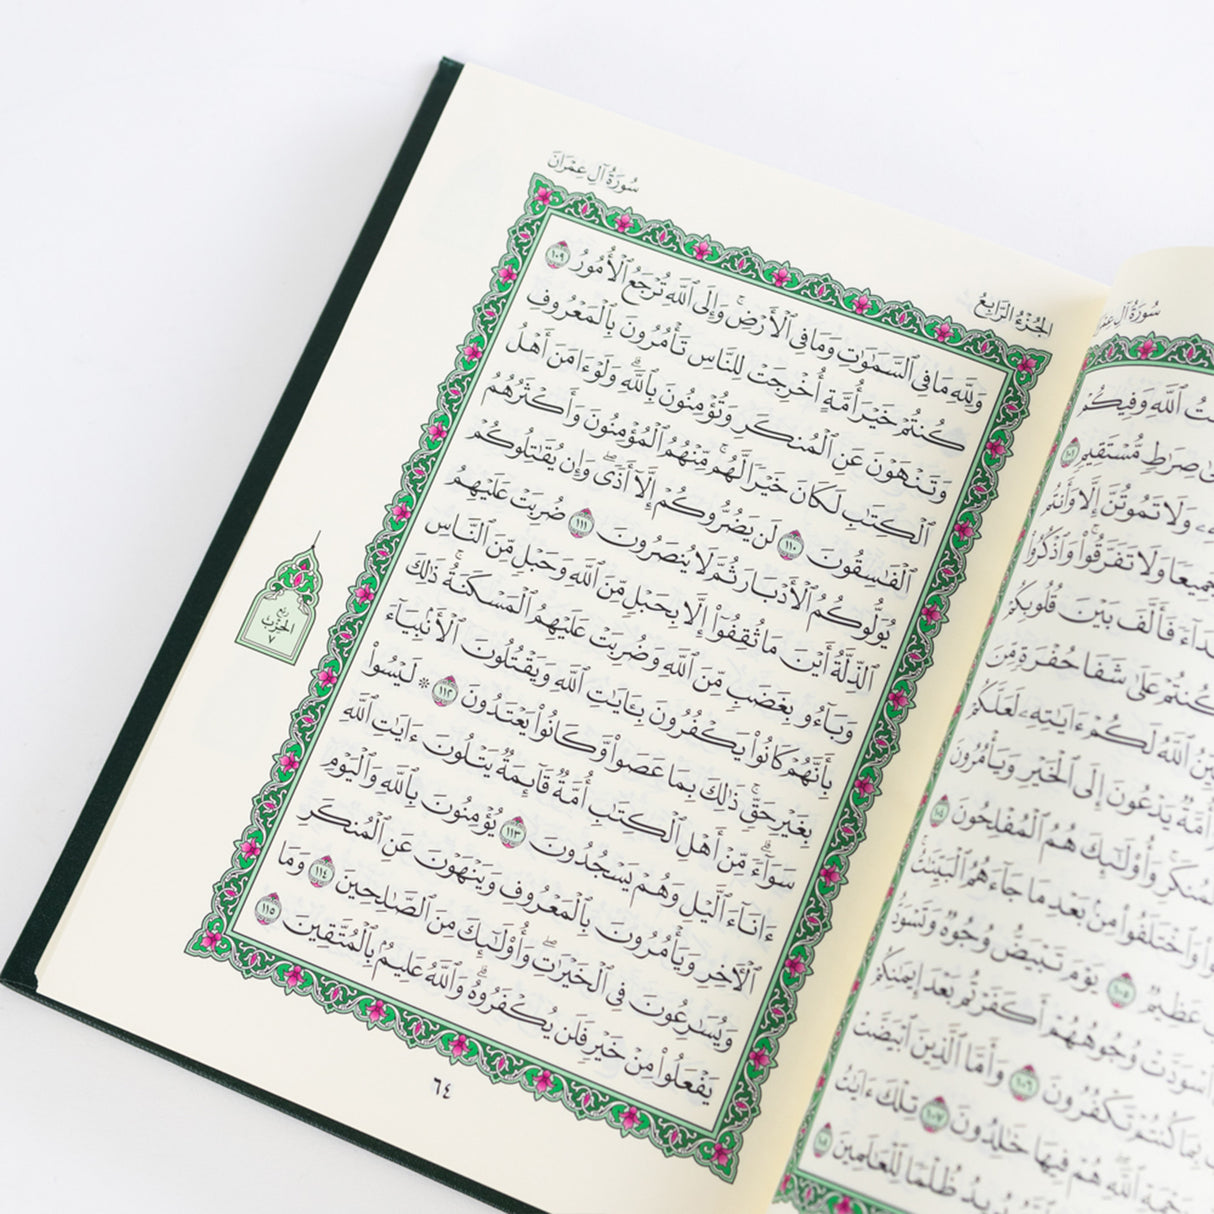 سُورَةُ آلِ عِمْرَانَ
ٱللَّهِ وَفِيكُمْ
صِرَٰطٍ مُّسْتَقِيمٍ ١٠١
وَلَا تَمُوتُنَّ إِلَّا وَأَنتُم
وَلَا تَفَرَّقُوا۟ وَٱذْكُرُوا۟
فَأَلَّفَ بَيْنَ قُلُوبِكُمْ
كُنتُمْ عَلَىٰ شَفَا حُفْرَةٍ مِّنَ
ٱللَّهُ لَكُمْ ءَايَٰتِهِۦ لَعَلَّكُمْ
أُمَّةٌ يَدْعُونَ إِلَى ٱلْخَيْرِ وَيَأْمُرُونَ
وَأُو۟لَٰٓئِكَ هُمُ ٱلْمُفْلِحُونَ ١٠٤
وَٱخْتَلَفُوا۟ مِنۢ بَعْدِ مَا جَآءَهُمُ ٱلْبَيِّنَٰتُ
عَظِيمٌ ١٠٥ يَوْمَ تَبْيَضُّ وُجُوهٌ وَتَسْوَدُّ
ٱسْوَدَّتْ وُجُوهُهُمْ أَكَفَرْتُم بَعْدَ إِيمَٰنِكُمْ
بِمَا كُنتُمْ تَكْفُرُونَ ١٠٦ وَأَمَّا ٱلَّذِينَ ٱبْيَضَّتْ
ٱللَّهِ هُمْ فِيهَا خَٰلِدُونَ ١٠٧ تِلْكَ ءَايَٰتُ
يُرِيدُ ظُلْمًا لِّلْعَٰلَمِينَ ١٠٨
الجُزْءُ الرَّابِعُ
سُورَةُ آلِ عِمْرَانَ
وَلِلَّهِ مَا فِى ٱلسَّمَٰوَٰتِ وَمَا فِى ٱلْأَرْضِ ۚ وَإِلَى ٱللَّهِ تُرْجَعُ ٱلْأُمُورُ ١٠٩
كُنتُمْ خَيْرَ أُمَّةٍ أُخْرِجَتْ لِلنَّاسِ تَأْمُرُونَ بِٱلْمَعْرُوفِ
وَتَنْهَوْنَ عَنِ ٱلْمُنكَرِ وَتُؤْمِنُونَ بِٱللَّهِ ۗ وَلَوْ ءَامَنَ أَهْلُ
ٱلْكِتَٰبِ لَكَانَ خَيْرًا لَّهُم ۚ مِّنْهُمُ ٱلْمُؤْمِنُونَ وَأَكْثَرُهُمُ
ٱلْفَٰسِقُونَ ١١٠ لَن يَضُرُّوكُمْ إِلَّآ أَذًى ۖ وَإِن يُقَٰتِلُوكُمْ
يُوَلُّوكُمُ ٱلْأَدْبَارَ ثُمَّ لَا يُنصَرُونَ ١١١ ضُرِبَتْ عَلَيْهِمُ
ٱلذِّلَّةُ أَيْنَ مَا ثُقِفُوٓا۟ إِلَّا بِحَبْلٍ مِّنَ ٱللَّهِ وَحَبْلٍ مِّنَ ٱلنَّاسِ
وَبَآءُو بِغَضَبٍ مِّنَ ٱللَّهِ وَضُرِبَتْ عَلَيْهِمُ ٱلْمَسْكَنَةُ ۚ ذَٰلِكَ
بِأَنَّهُمْ كَانُوا۟ يَكْفُرُونَ بِـَٔايَٰتِ ٱللَّهِ وَيَقْتُلُونَ ٱلْأَنۢبِيَآءَ
بِغَيْرِ حَقٍّ ۚ ذَٰلِكَ بِمَا عَصَوا۟ وَّكَانُوا۟ يَعْتَدُونَ ١١٢ ۞ لَيْسُوا۟
سَوَآءً ۗ مِّنْ أَهْلِ ٱلْكِتَٰبِ أُمَّةٌ قَآئِمَةٌ يَتْلُونَ ءَايَٰتِ ٱللَّهِ
ءَانَآءَ ٱلَّيْلِ وَهُمْ يَسْجُدُونَ ١١٣ يُؤْمِنُونَ بِٱللَّهِ وَٱلْيَوْمِ
ٱلْءَاخِرِ وَيَأْمُرُونَ بِٱلْمَعْرُوفِ وَيَنْهَوْنَ عَنِ ٱلْمُنكَرِ
وَيُسَٰرِعُونَ فِى ٱلْخَيْرَٰتِ ۖ وَأُو۟لَٰٓئِكَ مِنَ ٱلصَّٰلِحِينَ ١١٤ وَمَا
يَفْعَلُوا۟ مِنْ خَيْرٍ فَلَن يُكْفَرُوهُ ۗ وَٱللَّهُ عَلِيمٌۢ بِٱلْمُتَّقِينَ ١١٥
ربع
الحزب
٧
٦٤